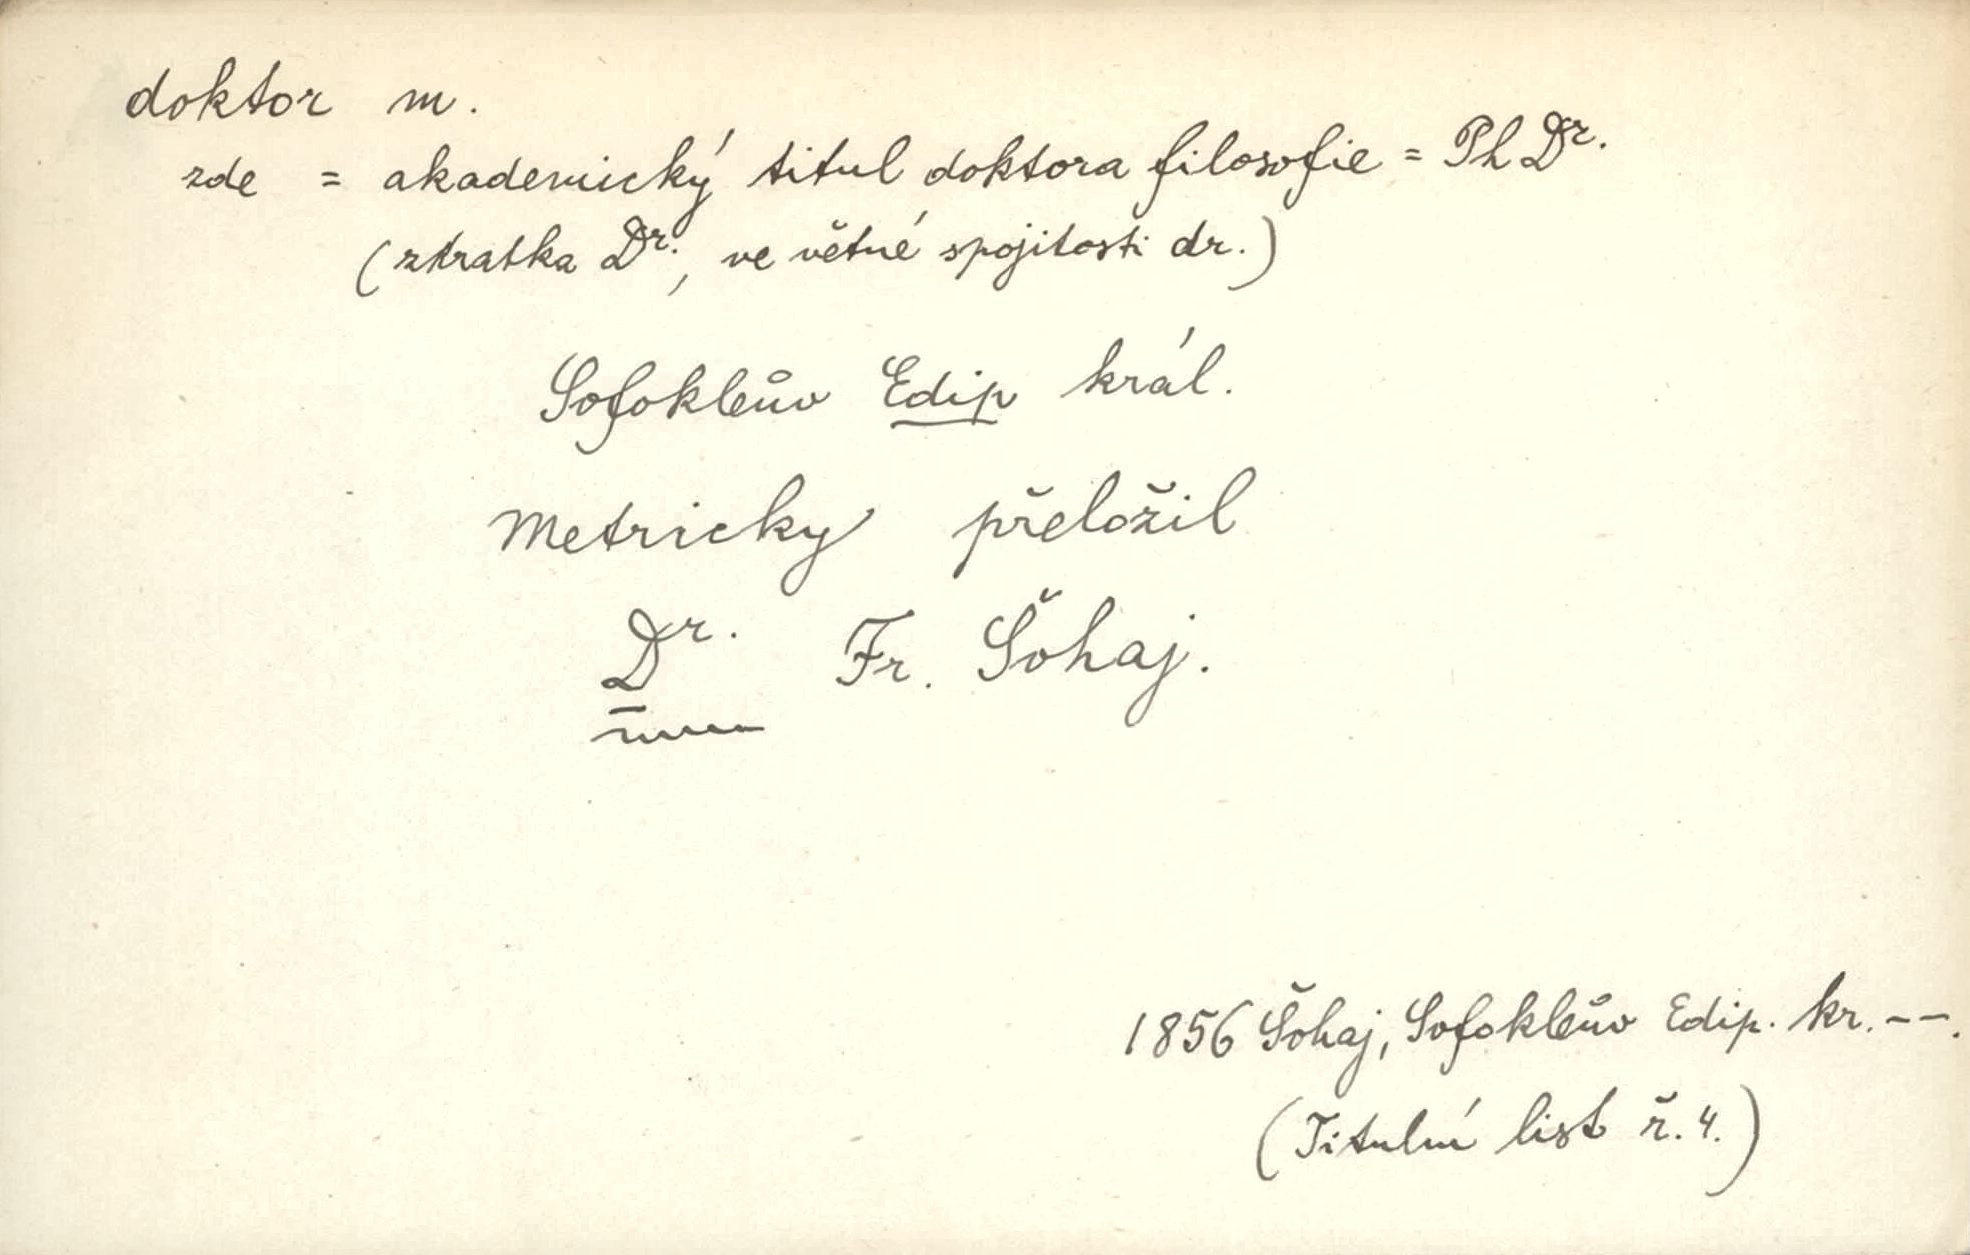 doktor m.
zde = akademický titul doktora filosofie = Ph Dr.
(zkratka Dr., ve větné spojitosti dr.)
Sofokleův Edip král.
Metricky přeložil
Dr. Fr. Šohaj.
1856 Šohaj, Sofokleův Edip. kr. --.
(Titulní list ř. 4.)